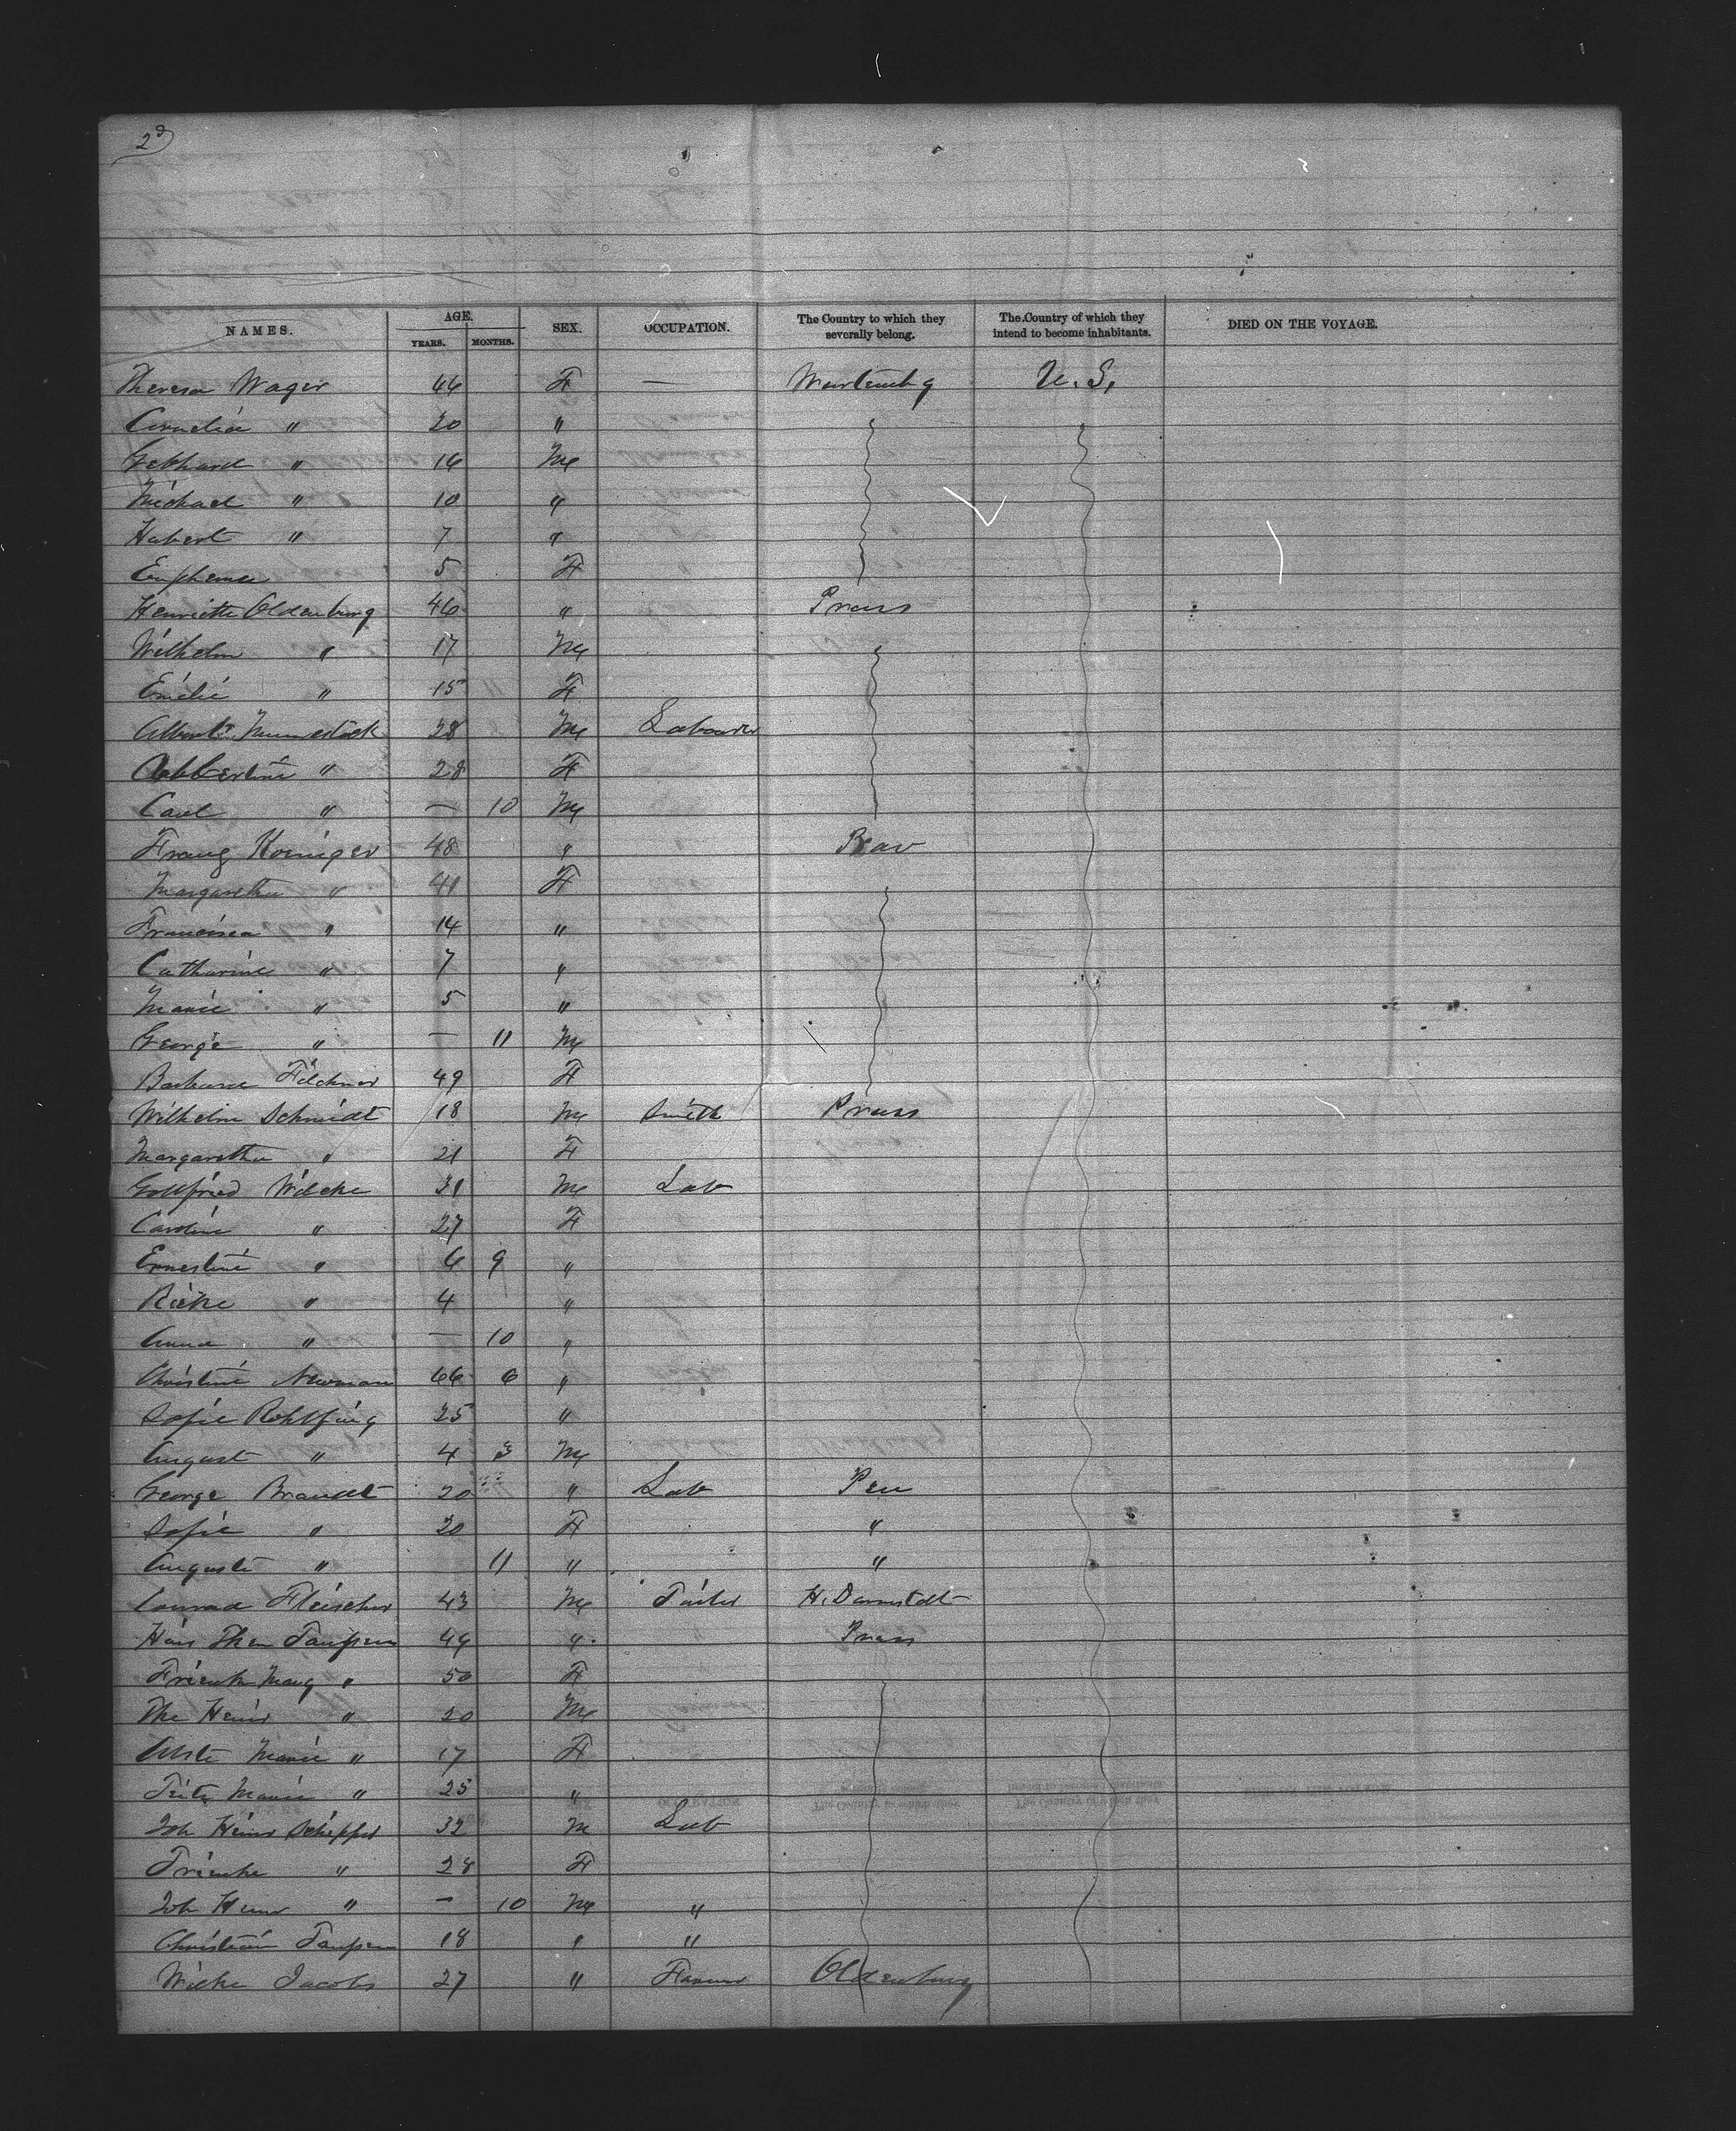 2d
NAMES. AGE. YEARS. MONTHS. SEX. OCCUPATION. The Country to which they severally belong. The Country of which they intend to become inhabitants. DIED ON THE VOYAGE.
Theresa Wager 44 F — Wurtembg U. S.
Cornelia " 20 "
Gebhard " 16 M
Michael " 10 "
Hubert " 7 "
5 F
Henriette Oldenburg 46 " Pruss
Wilhelm " 17 M
Emilie " 15 F
Albert 28 M Labourer
" 28 F
Carl " — 10 M
Franz Koeniger 48 " Bav
Margaretha " 41 F
Francisca " 14 "
Catharine " 7 "
Marie " 5 "
George " — 11 M
Barbara 49 F
Wilhelm Schmidt 18 M Smith Pruss
Margaretha " 21 F
Gottfried Wilcke 31 M Lab
Caroline " 27 F
Ernestine " 6 9 "
Rieke " 4 "
Anna " — 10 "
Christine Newman 66 6 "
Sofie Rohlfing 25 "
August " 4 3 M
George Brandt 20 " Lab
Sofie " 20 F "
Auguste " 11 " "
Conrad Fleischer 43 M H. Darmstadt
49 " Pruss
" 50 F
Heinr " 20 M
Marie " 17 F
Marie " 25 "
Joh Heinr 32 M Lab
Trienke " 28 F
Joh Heinr " — 10 M "
Christian 18 " "
Wilke Jacobs 27 " Farmer Oldenburg